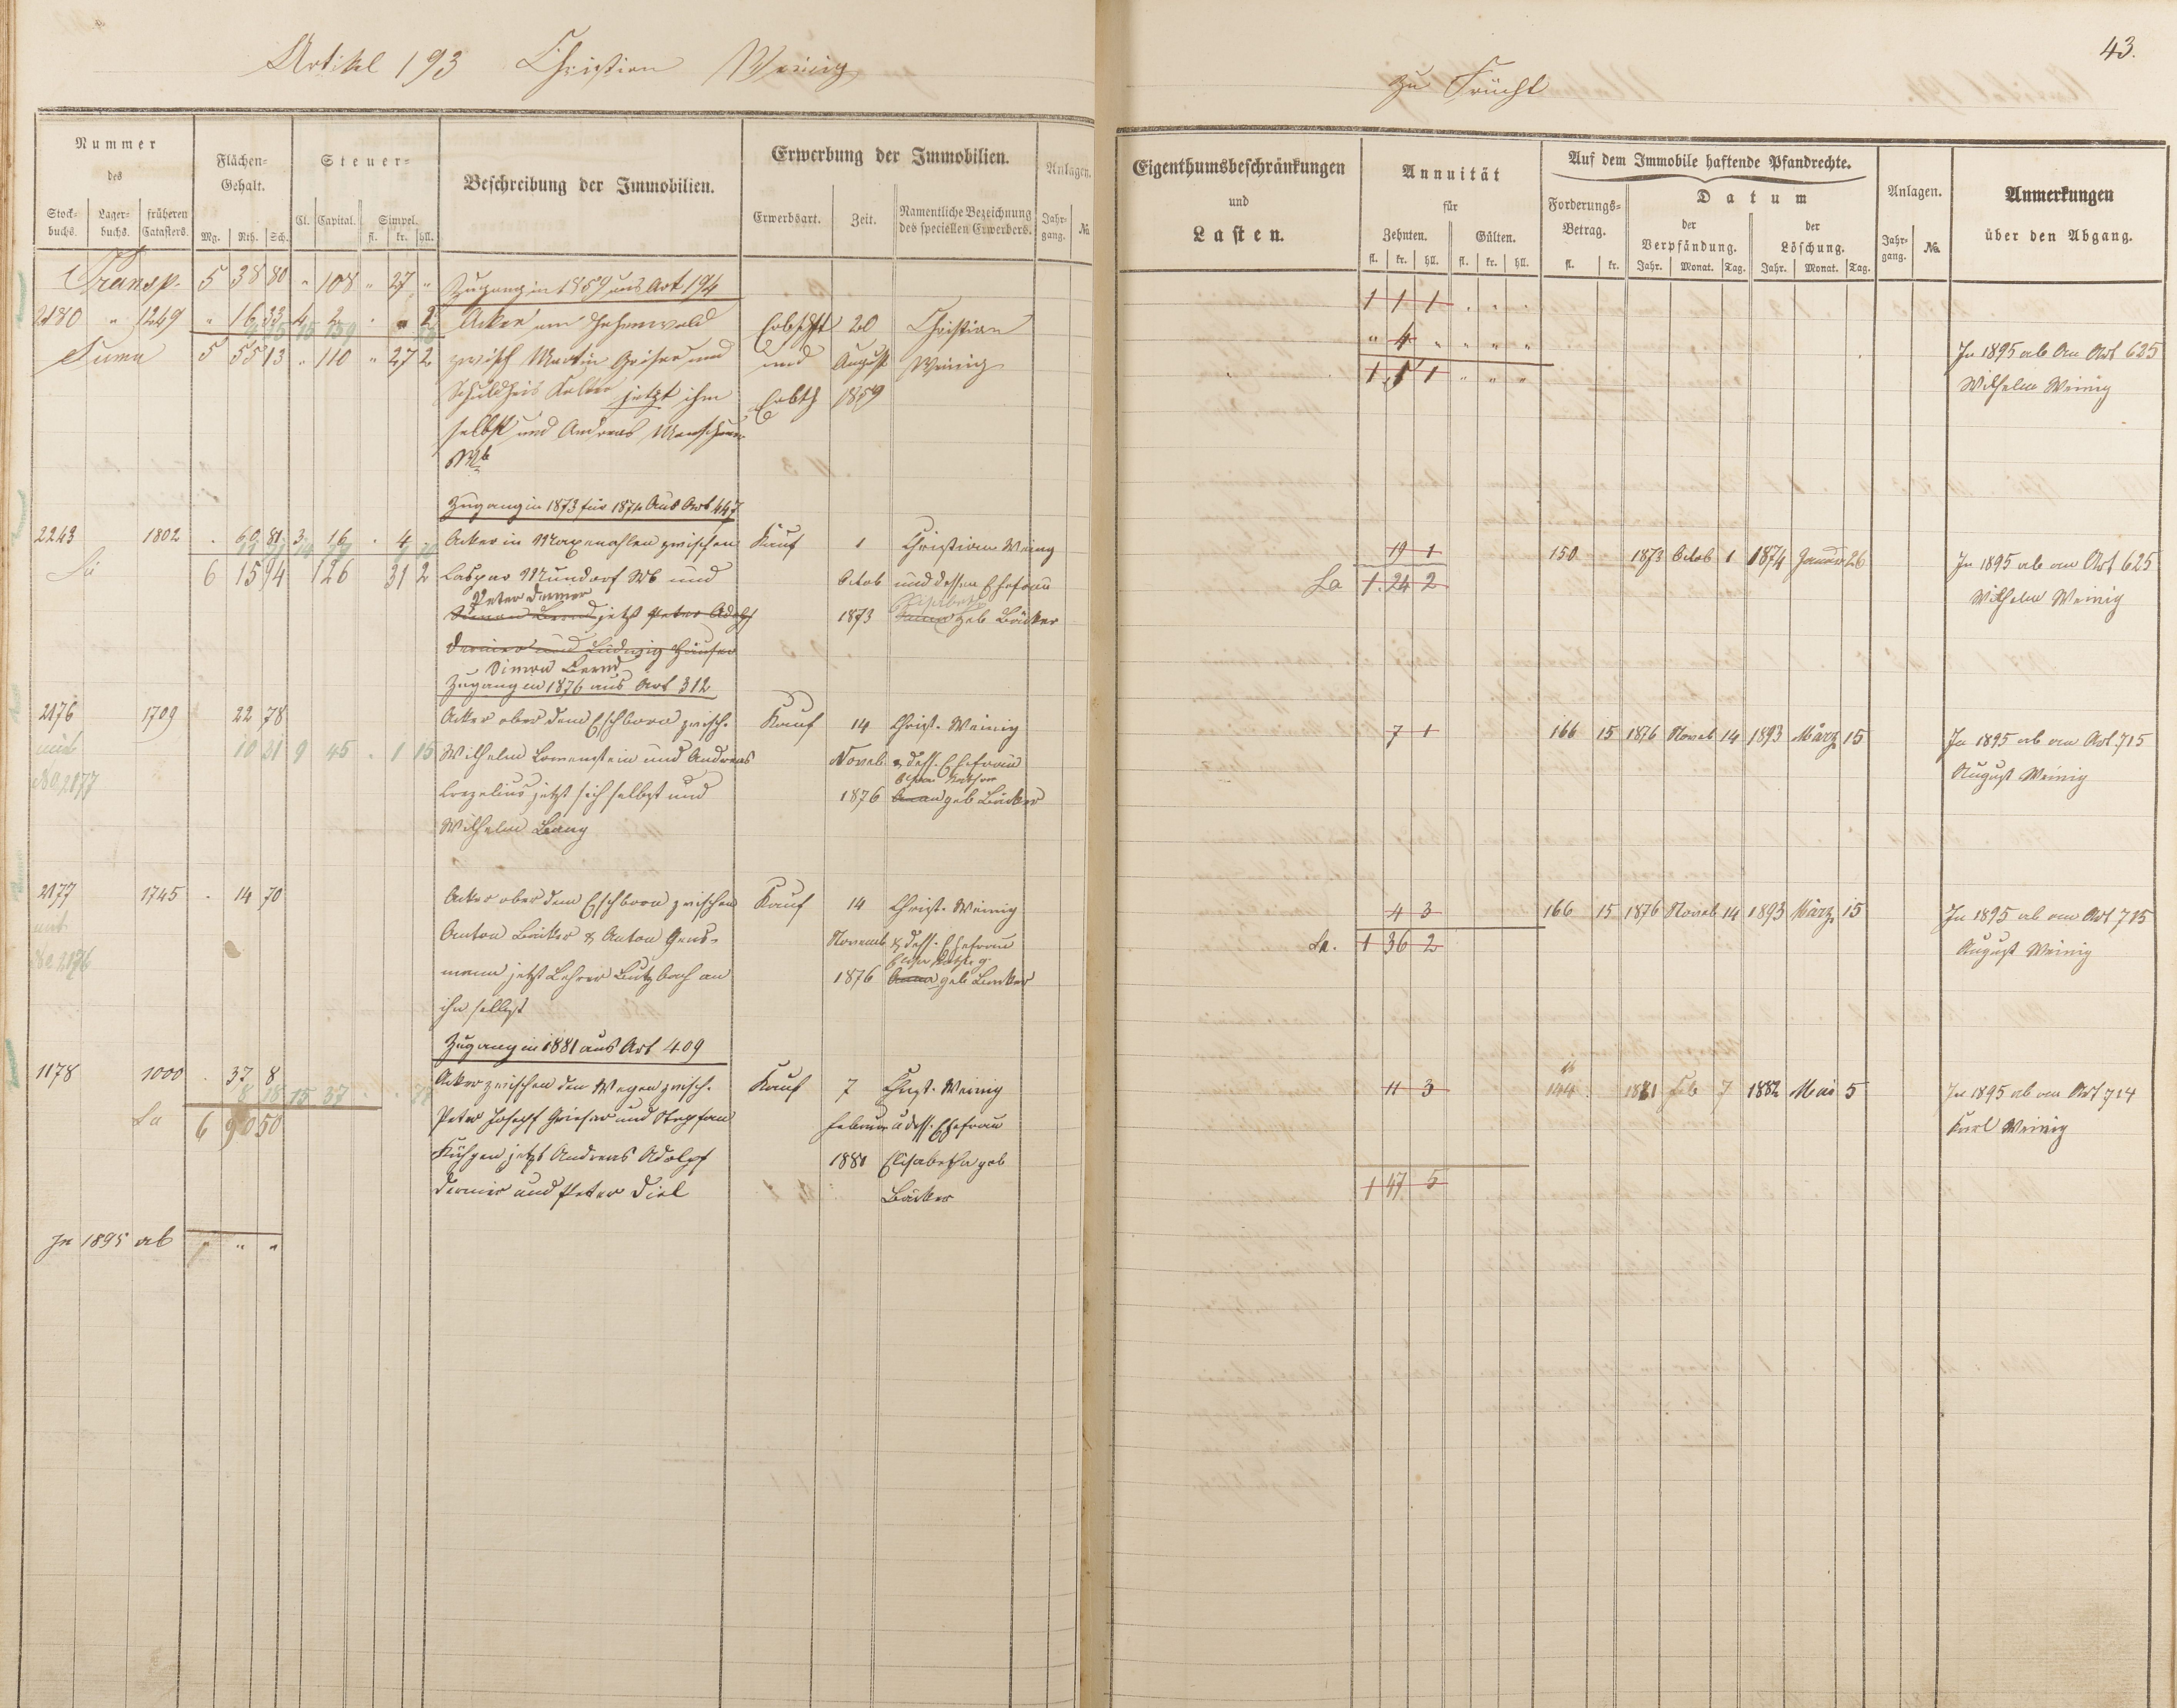 43.
Artikel 193 Christian Weinig
zu Frücht
Nummer des
Stock-buchs. Lager-buchs. früheren Catasters.
Flächen-Gehalt.
Mg. Rth. Sch.
Steuer-
Cl. Capital. Simpel.
fl. kr. hll.
Beschreibung der Immobilien.
Erwerbung der Immobilien.
Erwerbsart. Zeit. Namentliche Bezeichnung des speciellen Erwerbers.
Anlagen.
Jahr-gang. №
Eigenthumsbeschränkungen
und
Lasten.
Annuität
für
Zehnten. Gülten.
fl. kr. hll. fl. kr. hll.
Auf dem Immobile haftende Pfandrechte.
Forderungs-Betrag.
fl. kr.
Datum
der Verpfändung. der Löschung.
Jahr. Monat. Tag. Jahr. Monat. Tag.
Anlagen.
Jahr-gang. №.
Anmerkungen
über den Abgang.
Transp. 5 38 80 " 108 " 27 " Zugang in 1859 aus Art 194 1 1 1
2180 " 1249 " 16 33 4 2 " " 2 Acker am Hohenwald Erbschft 20 Christian " 4 " " " "
Suma 5 55 13 " 110 " 27 2 zwisch Martin Griser und und August Weinig 1 5 1 " " " In 1895 ab An Art 625
Schuldheis jetzt ihm Erbth 1859 Wilhelm Weinig
selbst und Andreas
Wb
Zugang in 1873 für 1874 Aus Art 447
2243 1802 . 60 81 3 16 . 4 . Acker in zwischen Kauf 1 Christian Weinig 19 1 150 1873 Octob 1 1874 Januar 26 In 1895 ab an Art 625
6 15 94 126 31 2 Caspar Mundorf Wb und Octob und dessen Ehefrau La 1. 24 2 Wilhelm Weinig
Peter Dermer
jetzt Peter Adolf 1873 geb Bäcker
Dermer und Ludwig Häuser
Simon Bernd
Zugang in 1876 aus Art 312
2176 1709 22 78 Acker ober dem Eschborn zwisch. Kauf 14 Christ. Weinig 7 1 166 15 1876 Noveb 14 1893 März 15 In 1895 ab an Art. 715
mit 10 21 9 45 . 1 15 Wilhelm Lorenstein und Andreas Noveb. & dess. Ehefrau August Weinig
No 2177 jetzt sich selbst und 1876 Anna geb Bäcker
Wilhelm Lang
2177 1745 . 14 70 Acker ober dem Eschborn zwischen Kauf 14 Christ. Weinig 4 3 166 15 1876 Noveb 14 1893 März 15 In 1895 ab an Art 715
mit Anton Bäcker & Anton Gens- Novemb. & dess. Ehefrau La. 1 36 2 August Weinig
No 2176 mann jetzt Lehrer Butzbach an 1876 Anna geb Bäcker
ihn selbst
Zugang in 1881 aus Art 409
1178 1000 . 37 8 Acker zwischen den Wegen zwisch. Kauf 7 Christ. Weinig 11 3 144 . 1881 Feb 7 1882 Mai 5 In 1895 ab an Art 714
8 18 15 37
La 6 90 50 Peter Joseph Grieser und Stephan Februar u dess. Ehefrau Karl Weinig
jetzt Andreas Adolph 1881 Elisabetha geb
Dermer und Peter Diel Bäcker 1 47 5
In 1895 ab " " "